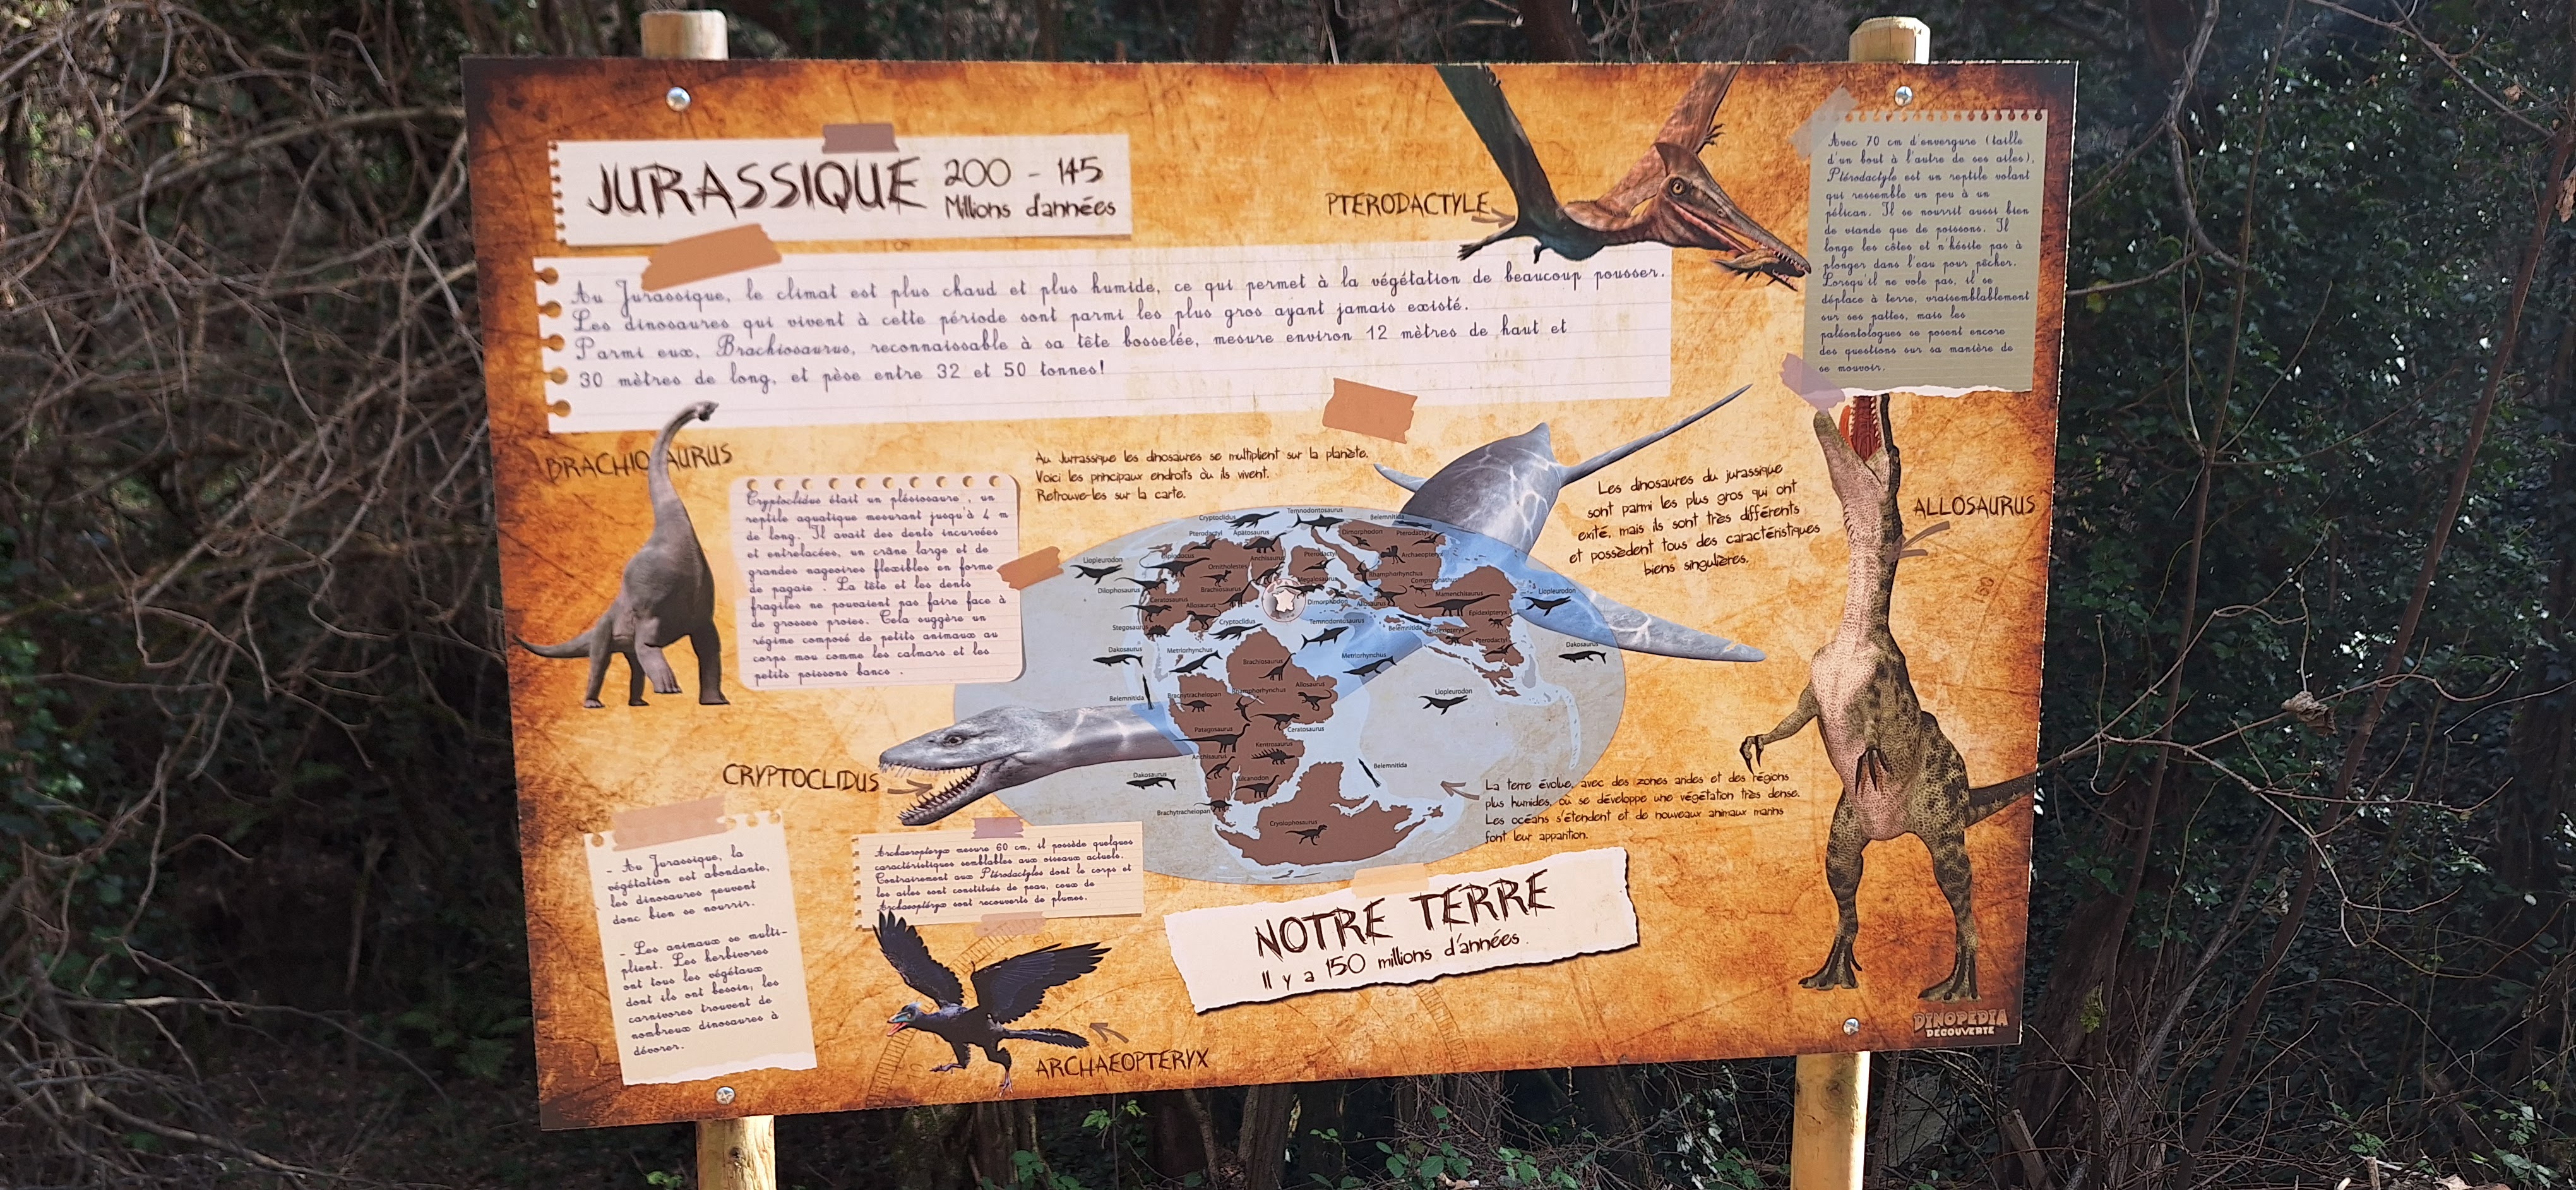 JURASSIQUE 200 - 145
Millions d'années
Au Jurassique, le climat est plus chaud et plus humide, ce qui permet à la végétation de beaucoup pousser.
Les dinosaures qui vivent à cette période sont parmi les plus gros ayant jamais existé.
Parmi eux, Brachiosaurus, reconnaissable à sa tête bosselée, mesure environ 12 mètres de haut et
30 mètres de long, et pèse entre 32 et 50 tonnes!
PTERODACTYLE
Avec 70 cm d'envergure (taille
d'un bout à l'autre de ses ailes),
Ptérodactyle est un reptile volant
qui ressemble un peu à un
pélican. Il se nourrit aussi bien
de viande que de poissons. Il
longe les côtes et n'hésite pas à
plonger dans l'eau pour pêcher.
Lorsqu'il ne vole pas, il se
déplace à terre, vraisemblablement
sur ses pattes, mais les
paléontologues se posent encore
des questions sur sa manière de
se mouvoir.
BRACHIOSAURUS
Cryptoclidus était un plésiosaure , un
reptile aquatique mesurant jusqu'à 4 m
de long. Il avait des dents incurvées
et entrelacées, un crâne large et de
grandes nageoires flexibles en forme
de pagaie . La tête et les dents
fragiles ne pouvaient pas faire face à
de grosses proies. Cela suggère un
régime composé de petits animaux au
corps mou comme les calmars et les
petits poissons bancs .
Au Jurrassique les dinosaures se multiplient sur la planète.
Voici les principaux endroits où ils vivent.
Retrouve-les sur la carte.
Les dinosaures du jurassique
sont parmi les plus gros qui ont
exité, mais ils sont très différents
et possèdent tous des caractéristiques
biens singulières.
ALLOSAURUS
Cryptoclidus
Temnodontosaurus
Belemnitida
Pterodactyl
Apatosaurus
Dimorphodon
Pterodactyl
Liopleurodon
Diplodocus
Anchisaurus
Pterodactyl
Archaeopteryx
Ornitholestes
Rhamphorhynchus
Dilophosaurus
Brachiosaurus
Megalosaurus
Compsognathus
Liopleurodon
Ceratosaurus
Allosaurus
Dimorphodon
Allosaurus
Mamenchisaurus
Epidexipteryx
Stegosaurus
Cryptoclidus
Temnodontosaurus
Belemnitida
Epidexipteryx
Pterodactyl
Dakosaurus
Metriorhynchus
Metriorhynchus
Dakosaurus
Brachiosaurus
Belemnitida
Brachytrachelopan
Rhamphorhynchus
Allosaurus
Liopleurodon
Patagosaurus
Ceratosaurus
Anchisaurus
Kentrosaurus
Belemnitida
Dakosaurus
Vulcanodon
Brachytrachelopan
Cryolophosaurus
CRYPTOCLIDUS
La terre évolue, avec des zones arides et des régions
plus humides, où se développe une végétation très dense.
Les océans s'étendent et de nouveaux animaux marins
font leur apparition.
- Au Jurassique, la
végétation est abondante,
les dinosaures peuvent
donc bien se nourrir.
- Les animaux se multi-
plient. Les herbivores
ont tous les végétaux
dont ils ont besoin, les
carnivores trouvent de
nombreux dinosaures à
dévorer.
Archaeopteryx mesure 60 cm, il possède quelques
caractéristiques semblables aux oiseaux actuels.
Contrairement aux Ptérodactyles dont le corps et
les ailes sont constitués de peau, ceux de
Archaeoptéryx sont recouverts de plumes.
ARCHAEOPTERYX
NOTRE TERRE
Il y a 150 millions d'années.
DINOPEDIA
DECOUVERTE